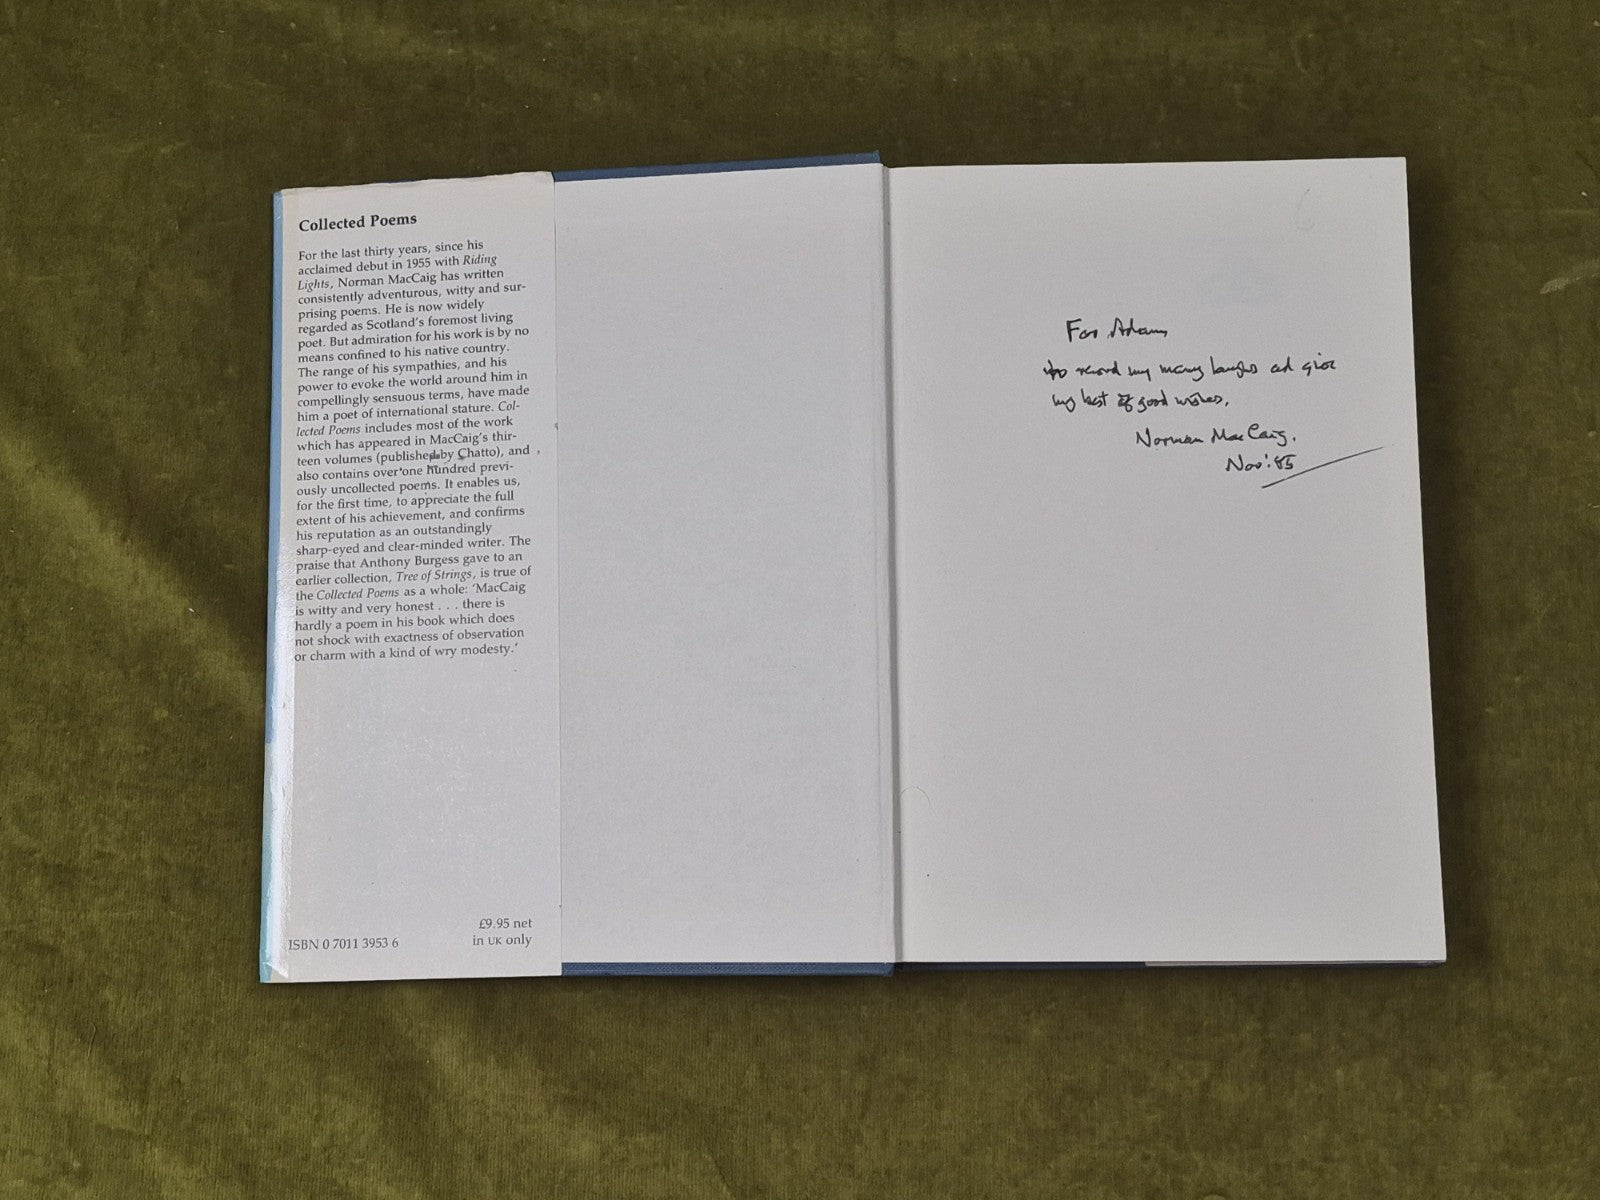 Collected Poems
For the last thirty years, since his
acclaimed debut in 1955 with Riding
Lights, Norman MacCaig has written
consistently adventurous, witty and sur-
prising poems. He is now widely
regarded as Scotland's foremost living
poet. But admiration for his work is by no
means confined to his native country.
The range of his sympathies, and his
power to evoke the world around him in
compellingly sensuous terms, have made
him a poet of international stature. Col-
lected Poems includes most of the work
which has appeared in MacCaig's thir-
teen volumes (published by Chatto), and
also contains over one hundred previ-
ously uncollected poems. It enables us,
for the first time, to appreciate the full
extent of his achievement, and confirms
his reputation as an outstandingly
sharp-eyed and clear-minded writer. The
praise that Anthony Burgess gave to an
earlier collection, Tree of Strings, is true of
the Collected Poems as a whole: 'MacCaig
is witty and very honest . . . there is
hardly a poem in his book which does
not shock with exactness of observation
or charm with a kind of wry modesty.'
£9.95 net
in UK only
ISBN 0 7011 3953 6
For Adam,
to record my many laughs and give
my best of good wishes,
Norman MacCaig.
Nov: 85